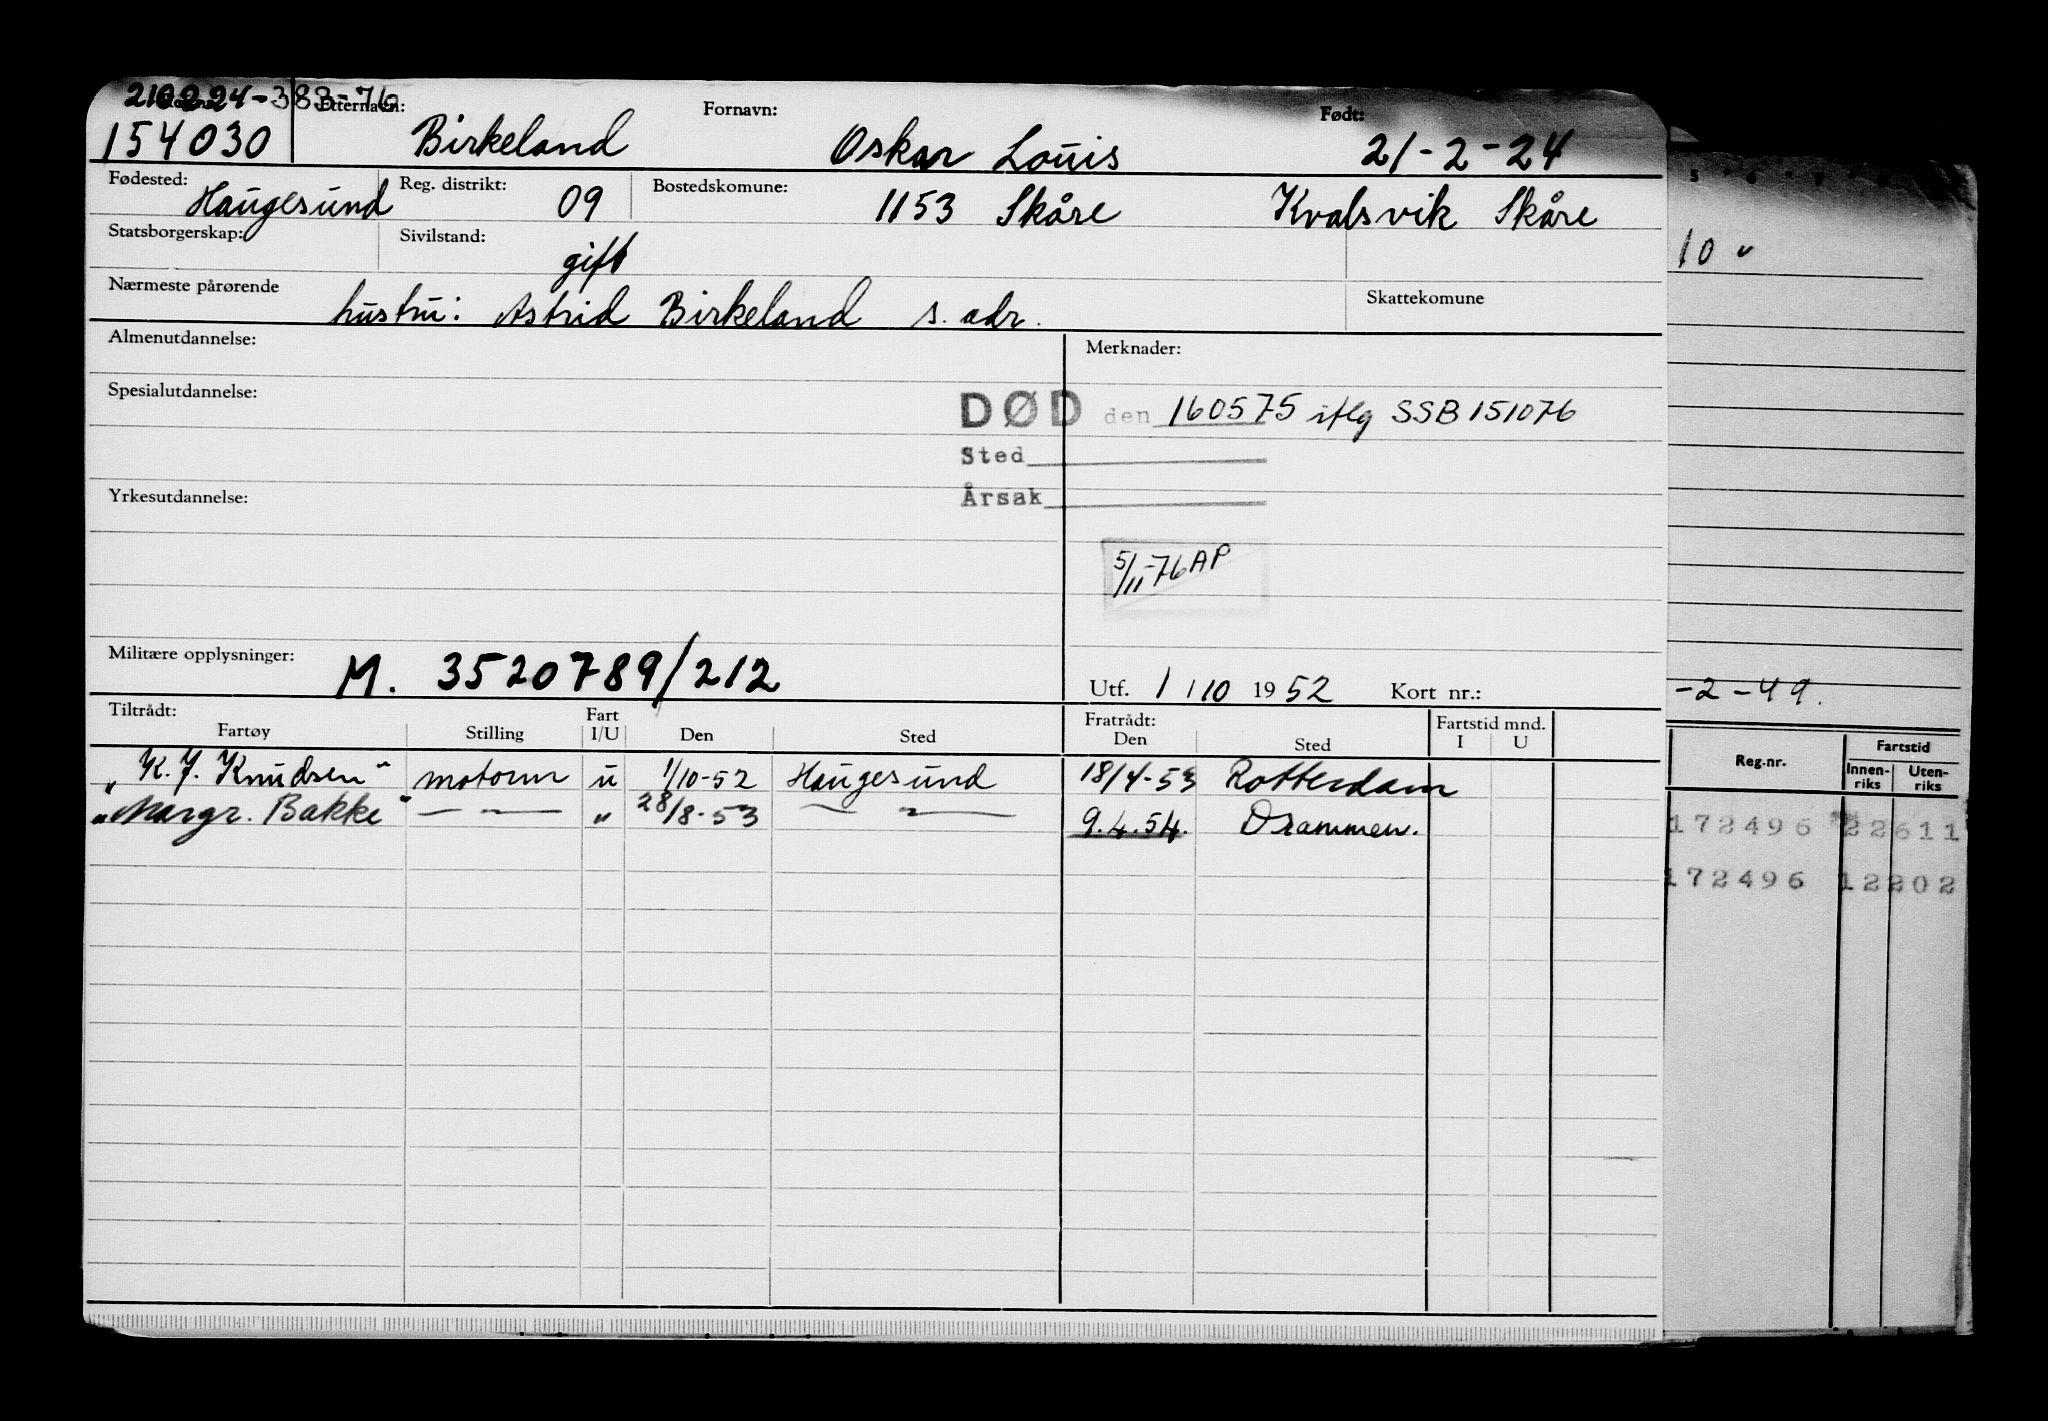 Etternavn: Fornavn: Født:
154030 Birkeland Oskar Louis 21-2-24
Fødested: Haugesund Reg. distrikt: 09 Bostedskomune: 1153 Skåre Kvalsvik Skåre
Statsborgerskap: Sivilstand: gift
Nærmeste pårørende hustru: Astrid Birkeland s. adr. Skattekomune
Almenutdannelse: Merknader:
Spesialutdannelse: DØD den 160575 iflg SSB 151076
Sted
Yrkesutdannelse: Årsak
5/11-76 AP
Militære opplysninger: M. 3520789/212
Utf. 1 / 10 1952 Kort nr.:
Tiltrådt: Fratrådt: Fartstid mnd.
Fartøy Stilling Fart I/U Den Sted Den Sted I U
"K. J. Knudsen" motorm u 1/10-52 Haugesund 18/4-53 Rotterdam
"Margr. Bakke" — " — " 28/8-53 — " — 9.4.54. Drammen.
10 "
-2-49.
Reg.nr. Fartstid
Innenriks Utenriks
172496 22611
172496 12202